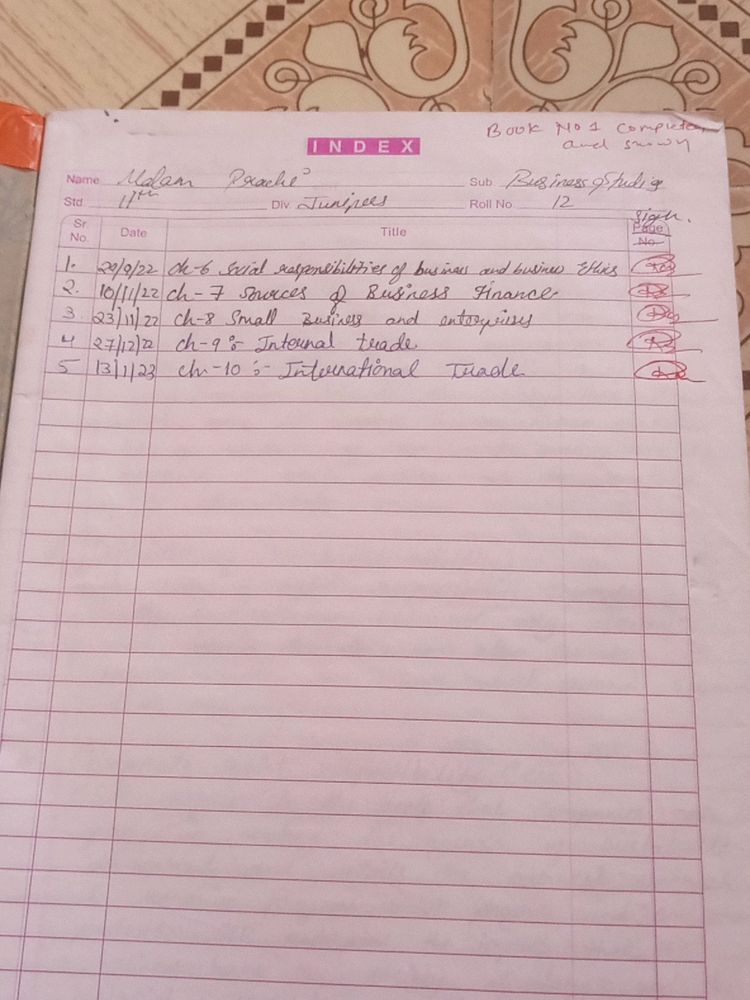 Book No 1 Complete
and shown
INDEX
Name Malam Prachi Sub Business Studies
Std 11th Div. Junipers Roll No. 12
Sr. No. Date Title Sign. Page No.
1. 29/9/22 ch-6 Social responsibilities of business and business Ethics
2. 10/11/22 ch-7 Sources of Business Finance.
3. 23/11/22 ch-8 Small Business and enterprises
4 27/12/22 ch-9 :- Internal trade
5 13/1/23 ch-10 :- International Trade